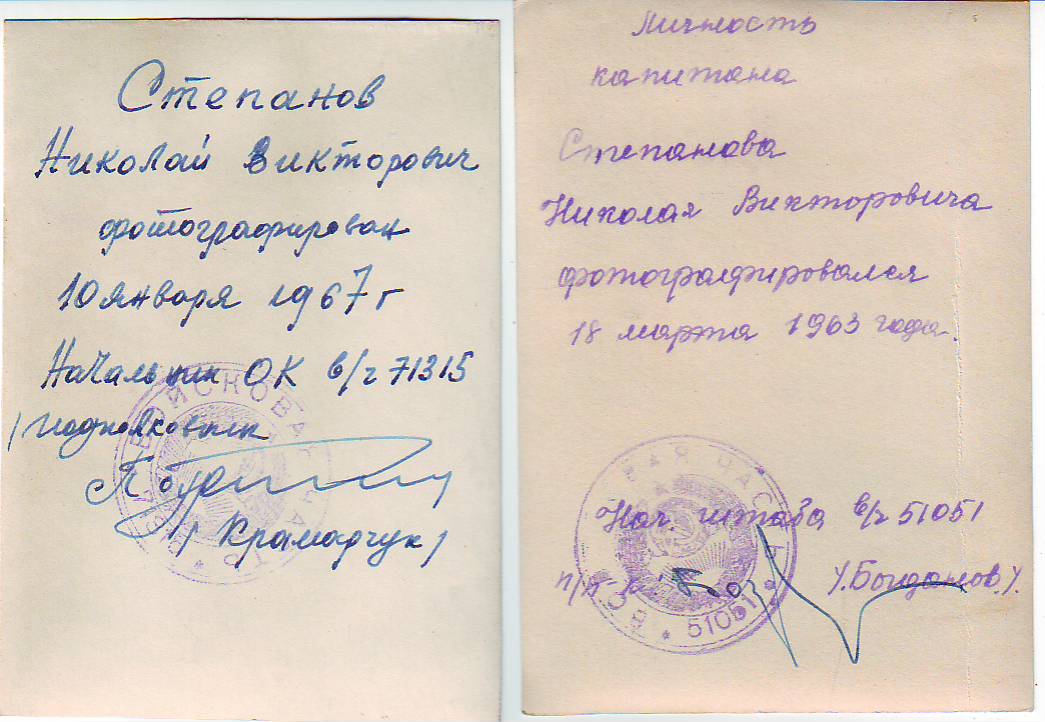 Степанов
Николай Викторович
фотографирован
10 января 1967 г
Начальник ОК в/ч 71315
/подполковник
/Крамадчук/
ВОЙСКОВАЯ ЧАСТЬ
Личность
капитана
Степанова
Николая Викторовича
фотографировался
18 марта 1963 года.
Нач. штаба в/ч 51051
п/п-к
/Богданов/
ВОЙСКОВАЯ ЧАСТЬ * 51051 *